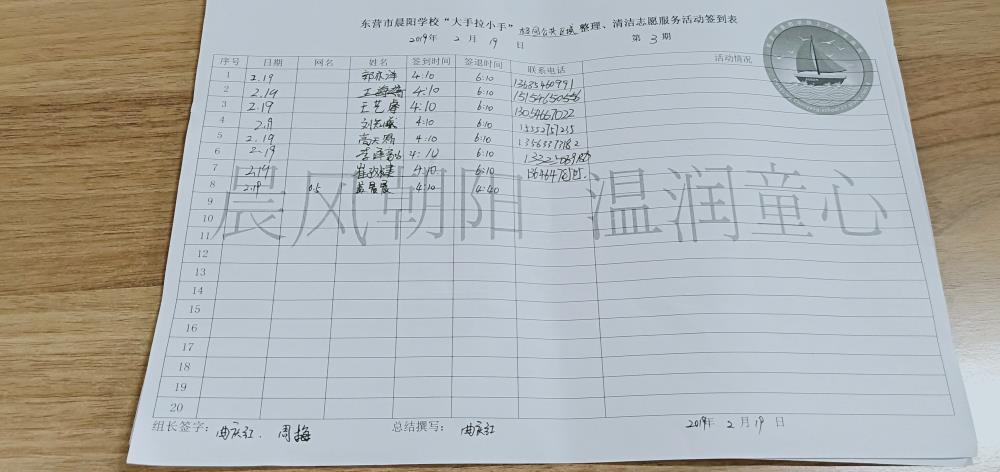 东营市晨阳学校“大手拉小手”校园公共区域整理、清洁志愿服务活动签到表
2019年 2 月 19 日 第 3 期
序号 日期 网名 姓名 签到时间 签退时间 联系电话 活动情况
1 2.19 4:10 6:10 13635460991
2 2.19 4:10 6:10 15154650556
3 2.19 王艺睿 4:10 6:10 13054667022
4 2.19 4:10 6:10 15352751235
5 2.19 4:10 6:10 13563373182
6 2.19 4:10 6:10
7 2.19 4:10 6:10
8 2.19 0.5 4:10 4:40
晨风朝阳 温润童心
9
10
11
12
13
14
15
16
17
18
19
20
组长签字：曲庆红、周梅 总结撰写：曲庆红 2019年 2 月 19 日